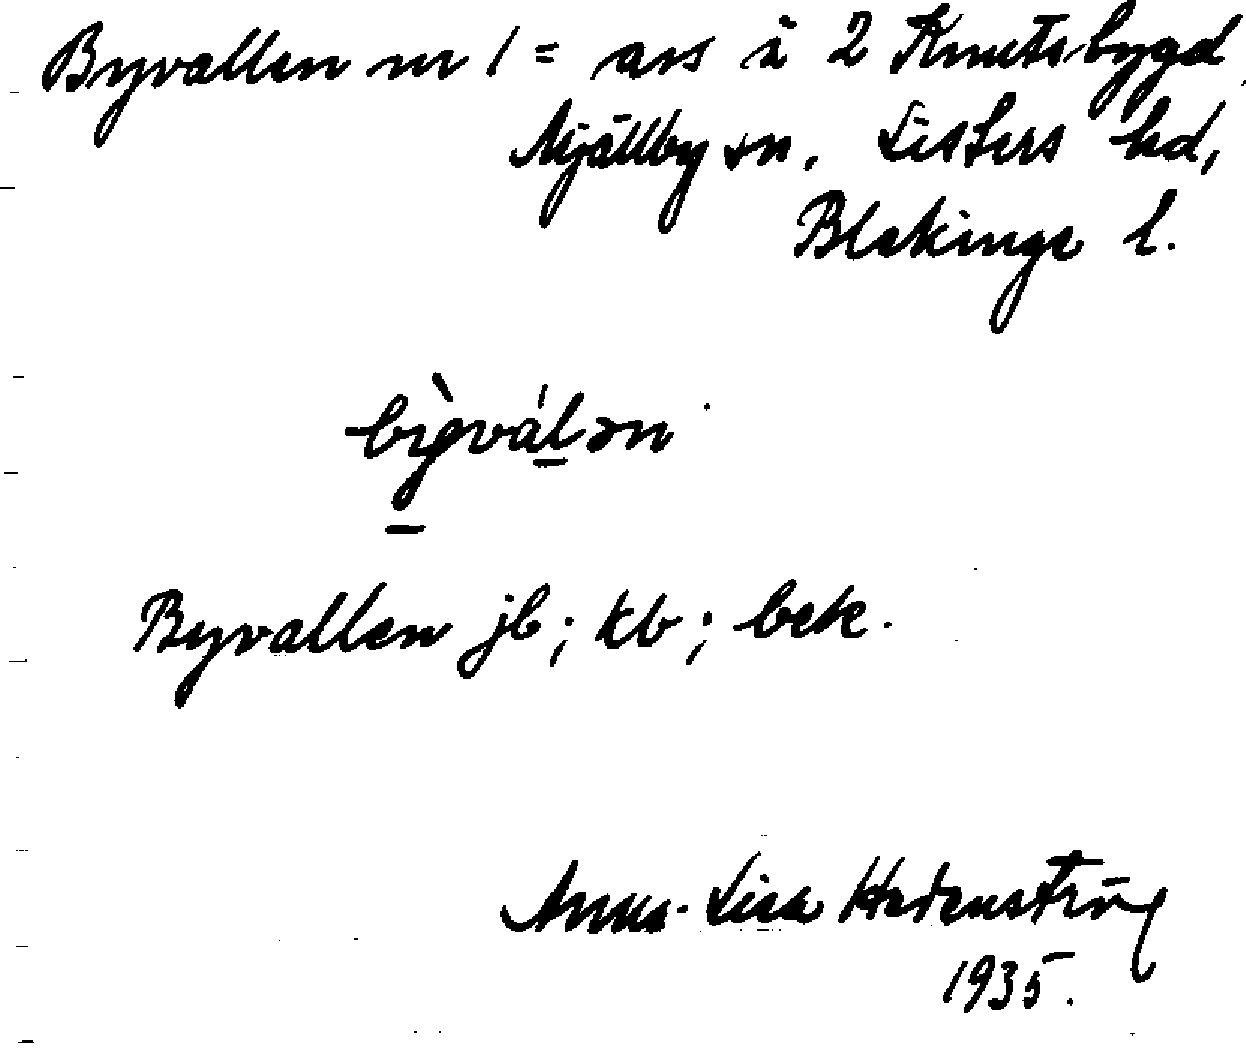 Byvallen nr 1 = avs å 2 Knutsbygd
Mjällby sn. Listers hd,
Blekinge l.
Byvallen jb; kb; bek.
Anna-Lisa Hedenström
1935.